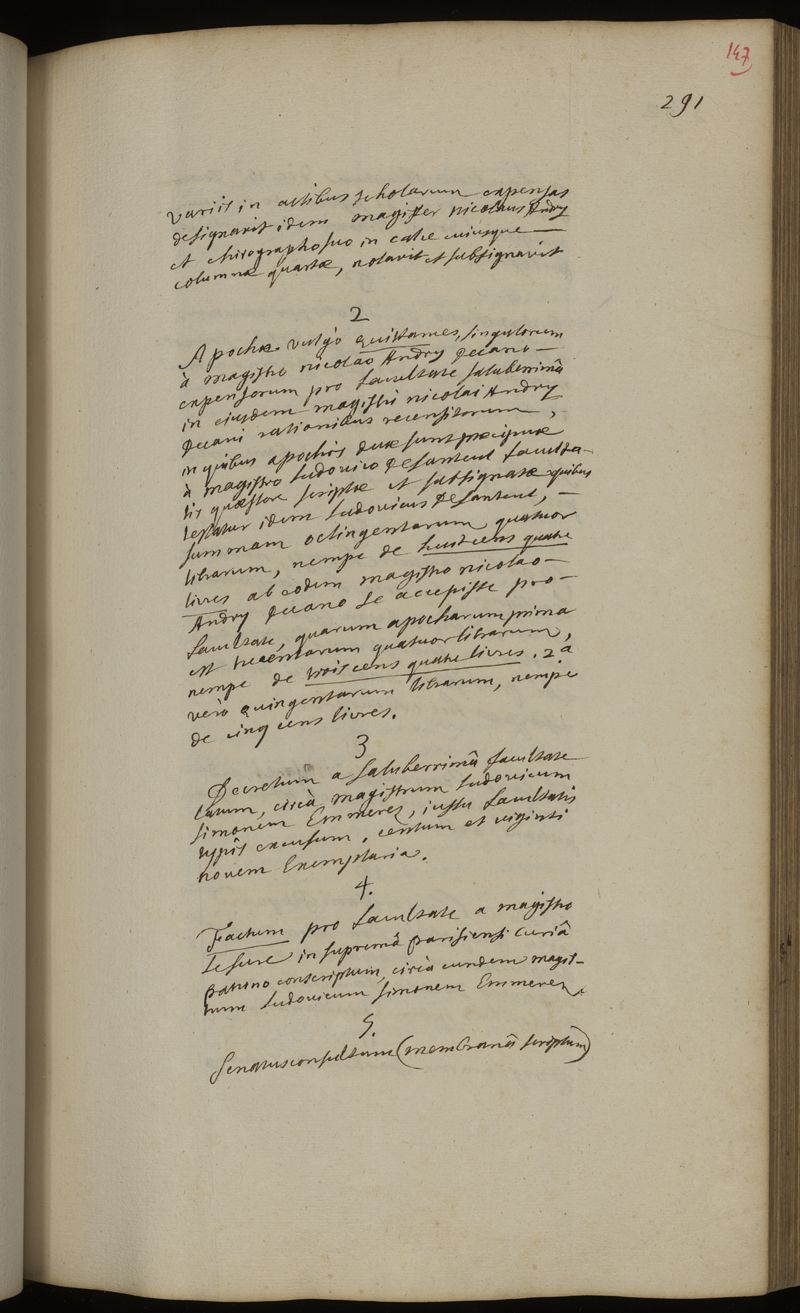 147
291
variis in actibus scholarum expensas
designavit idem magister nicolaus Andry
et chirographo suo in calce cuiusque
columnæ quartæ, notavit et subsignavit
2
Apochæ vulgò quittances, singulorum
à magistro nicolao Andry Decano
expensorum pro facultate saluberrimâ
in ejusdem magistri nicolai Andry
Decani rationibus recensitorum,
in quibus apochis duæ sunt præcipuæ
à magistro Ludovico De Santeul faculta-
tis quæstore scriptæ et subsignatæ quibus
testatur idem Ludovicus De Santeul,
summam octingentarum quatuor
librarum, nempe de huit cens quatre
livres ab eodem magistro nicolao
Andry Decano se accepisse pro
facultate, quarum apocharum prima
est trecentarum quatuor librarum,
nempe de trois cens quatre livres. 2.a
verò quingentarum librarum, nempe
de cinq cens livres.
3
Decretum a saluberrimâ facultate
latum, circà magistrum Ludovicum
simonem Emmerez, jussu facultatis
typis excusum, centum et viginti
novem Exemplaria.
4.
Factum pro facultate a magistro
Lesure in supremâ parisiensi Curiâ
patrono conscriptum, circà eundem magis-
trum Ludovicum simonem Emmerez
5.
Senatusconsultum (membranâ scriptum)